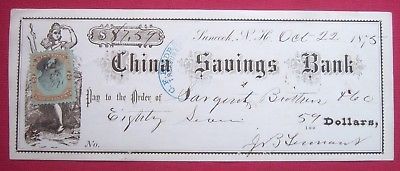 Suncook, N.H. Oct 22 1875
$87.59
China Savings Bank
Pay to the Order of Sargent Brothers & Co
Eighty Seven 59/100 Dollars,
No. J B Tennant